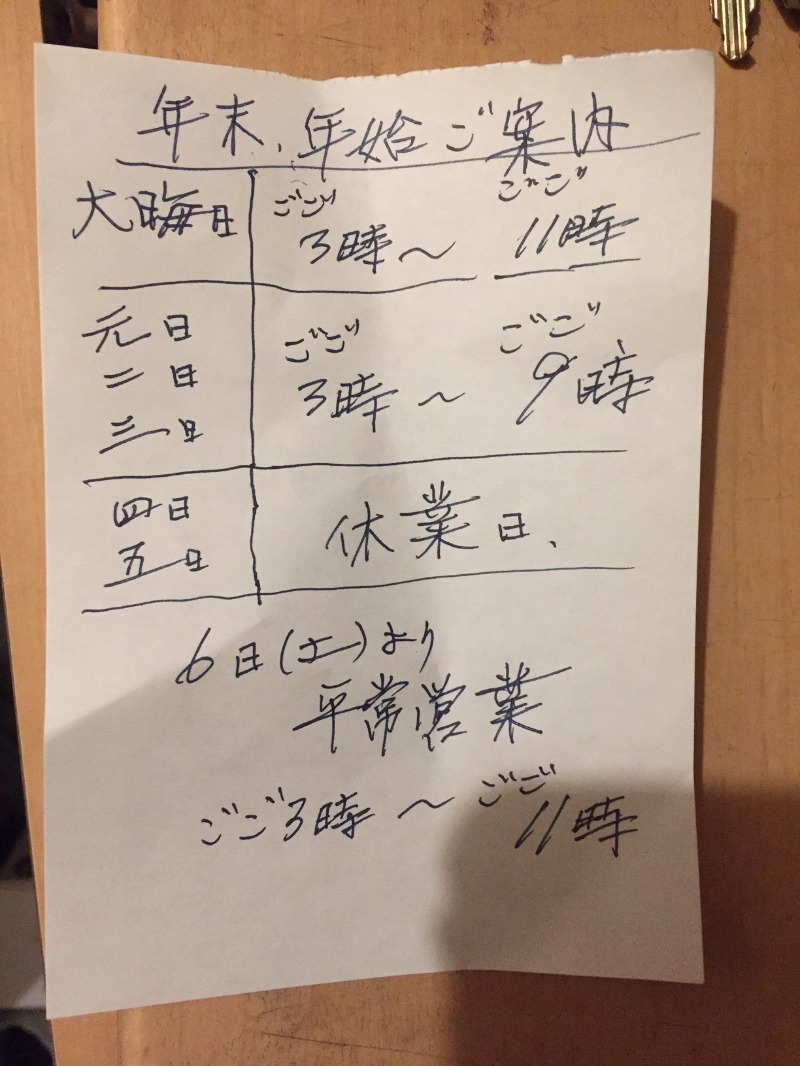 年末、年始ご案内
大晦日 ごご3時〜 ごご11時
元日
二日 ごご3時〜 ごご9時
三日
四日 休業日、
五日
6日(土)より
平常営業
ごご3時〜ごご11時